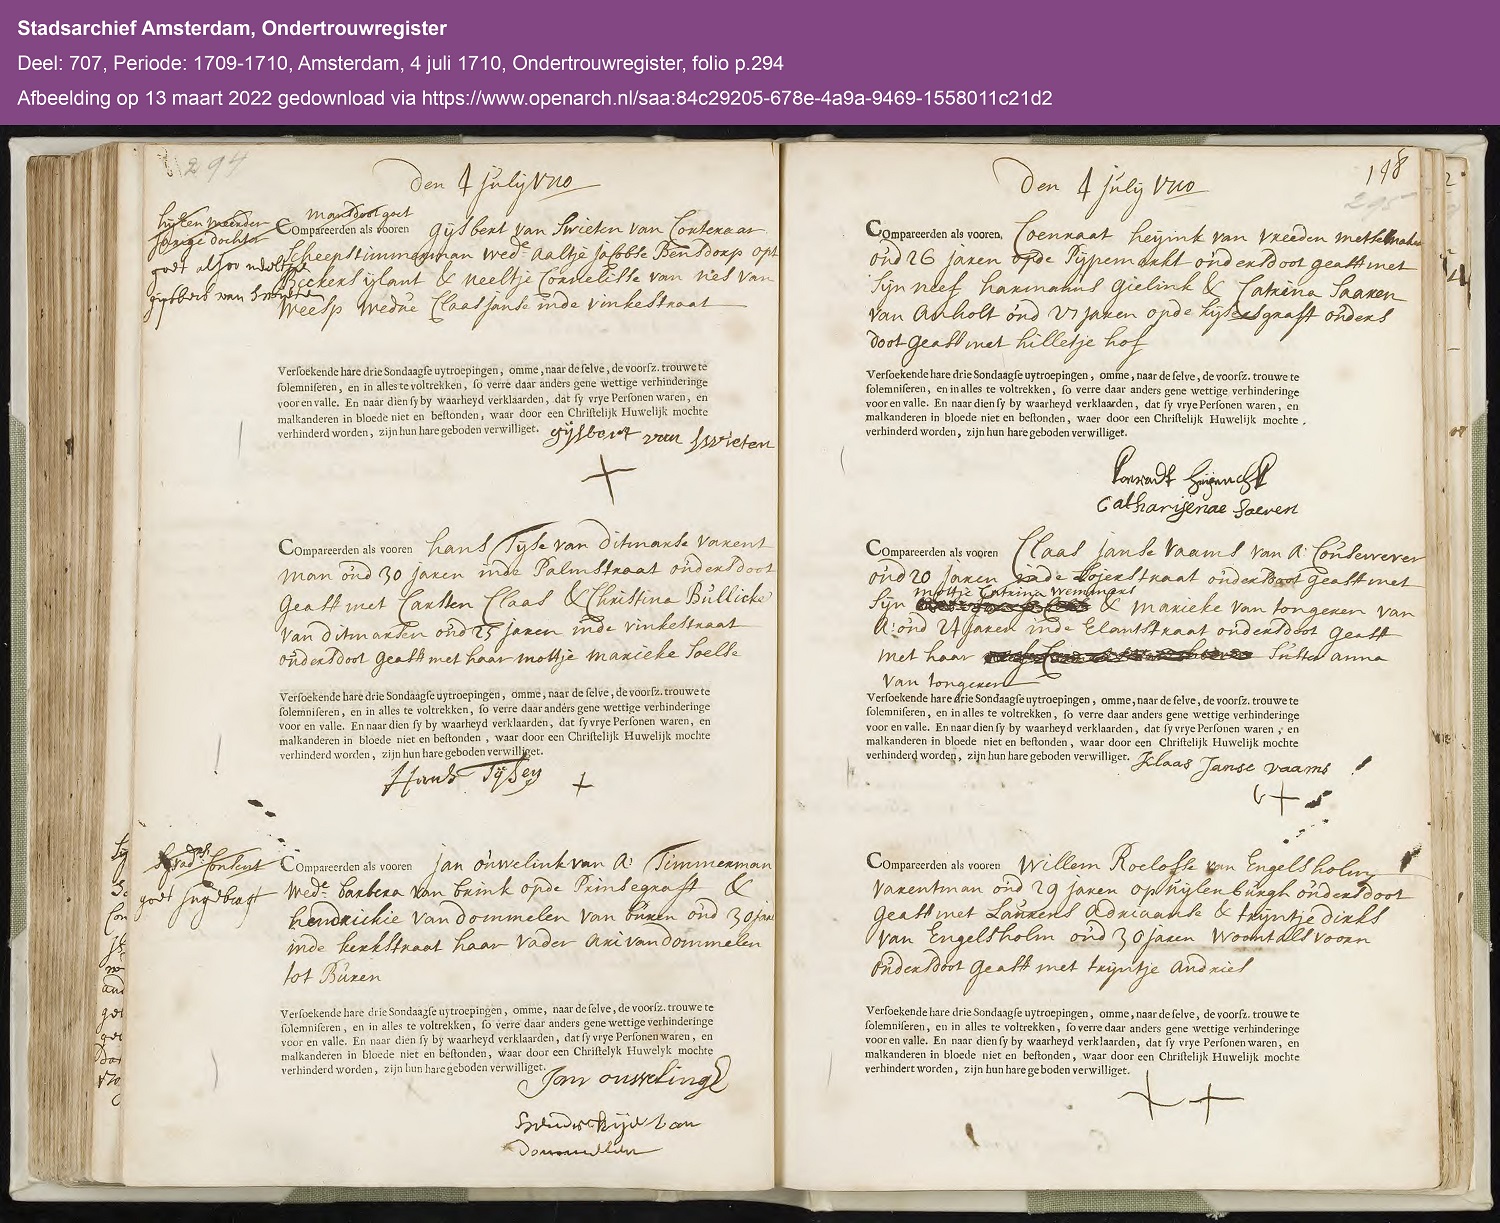 Stadsarchief Amsterdam, Ondertrouwregister
Deel: 707, Periode: 1709-1710, Amsterdam, 4 juli 1710, Ondertrouwregister, folio p.294
Afbeelding op 13 maart 2022 gedownload via https://www.openarch.nl/saa:84c29205-678e-4a9a-9469-1558011c21d2
294
Den 4 Julij 1710
COmpareerden als vooren Gijsbert van Swieten van
Scheepstimmerman wedr Aaltje Jacobse Bensdorp opt
Bickers ijlant & neeltje Cornelisse van nes van
Weesp wedue Claas Janse inde vinkestraat
Versoekende hare drie Sondaagse uytroepingen, omme, naar de selve, de voorsz. trouwe te
solemniseren, en in alles te voltrekken, so verre daar anders gene wettige verhinderinge
voor en valle. En naar dien sy by waarheyd verklaarden, dat sy vrye Personen waren, en
malkanderen in bloede niet en bestonden, waar door een Christelijk Huwelijk mochte
verhinderd worden, zijn hun hare geboden verwilliget.
gijsbert van swieten
COmpareerden als vooren hans Tijse van ditmarse varent
man oud 30 jaren inde Palmstraat ouders doot
geast met Carsten Claas & Christina Bullicke
van ditmarsen oud 25 jaren inde vinkestraat
ouders doot geast met haar mottje marieke
Versoekende hare drie Sondaagse uytroepingen, omme, naar de selve, de voorsz. trouwe te
solemniseren, en in alles te voltrekken, so verre daar anders gene wettige verhinderinge
voor en valle. En naar dien sy by waarheyd verklaarden, dat sy vrye Personen waren, en
malkanderen in bloede niet en bestonden, waar door een Christelijk Huwelijk mochte
verhinderd worden, zijn hun hare geboden verwilliget.
Hans Tijsen
COmpareerden als vooren Jan ouwelink van A: Timmerman
wedr barbera van brink op de Prinsegraft &
hendrickie van dommelen van buren oud 30 jar
inde kerkstraat haar vader Ari van dommelen
tot Buren
Versoekende hare drie Sondaagse uytroepingen, omme, naar de selve, de voorsz. trouwe te
solemniseren, en in alles te voltrekken, so verre daar anders gene wettige verhinderinge
voor en valle. En naar dien sy by waarheyd verklaarden, dat sy vrye Personen waren, en
malkanderen in bloede niet en bestonden, waar door een Christelyk Huwelyk mochte
verhinderd worden, zijn hun hare geboden verwilliget.
Jan ouweling
van
Dommelen
Den 4 Julij 1710
148
295
COmpareerden als vooren, Coenraat heijink van vreeden metselaar
oud 26 jaren op de Pijpemarkt ouders doot geast met
sijn neef harmanus gielink & Catrina Saaren
van Anholt oud 27 jaren op de kijsersgraft ouders
doot geast met hilletje hof
Versoekende hare drie Sondaagse uytroepingen, omme, naar de selve, de voorsz. trouwe te
solemniseren, en in alles te voltrekken, so verre daar anders gene wettige verhinderinge
voor en valle. En naar dien sy by waarheyd verklaarden, dat sy vrye Personen waren, en
malkanderen in bloede niet en bestonden, waer door een Christelijk Huwelijk mochte
verhinderd worden, zijn hun hare geboden verwilliget.
COmpareerden als vooren Claas Janse vaams van A:
oud 20 jaren inde Looierstraat ouders doot geast met
mottje Catrina wemmers
sijn & marieke van tongeren van
A: oud 24 jaren inde Elantstraat ouders doot geast
met haar suster anna
van tongeren
Versoekende hare drie Sondaagse uytroepingen, omme, naar de selve, de voorsz. trouwe te
solemniseren, en in alles te voltrekken, so verre daar anders gene wettige verhinderinge
voor en valle. En naar dien sy by waarheyd verklaarden, dat sy vrye Personen waren, en
malkanderen in bloede niet en bestonden, waar door een Christelijk Huwelijk mochte
verhinderd worden, zijn hun hare geboden verwilliget.
Klaas Janse vaams
COmpareerden als vooren Willem Roelofse van Engelsholm
varentman oud 29 jaren op uijlenburgh ouders doot
geast met Laurens Adriaanse & trijntje dirks
van Engelsholm oud 30 jaren woont als voorn
ouders doot geast met trijntje Andries
Versoekende hare drie Sondaagse uytroepingen, omme, naar de selve, de voorsz. trouwe te
solemniseren, en in alles te voltrekken, so verre daar anders gene wettige verhinderinge
voor en valle. En naar dien sy by waarheyd verklaarden, dat sy vrye Personen waren, en
malkanderen in bloede niet en bestonden, waar door een Christelijk Huwelijk mochte
verhindert worden, zijn hun hare geboden verwilliget.